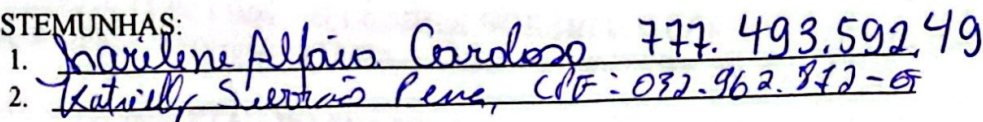 STEMUNHAS:
1. Marilene Alfaia Cardoso 777.493.592,49
2. Katrielly Serrão Pena, CPF: 032.962.